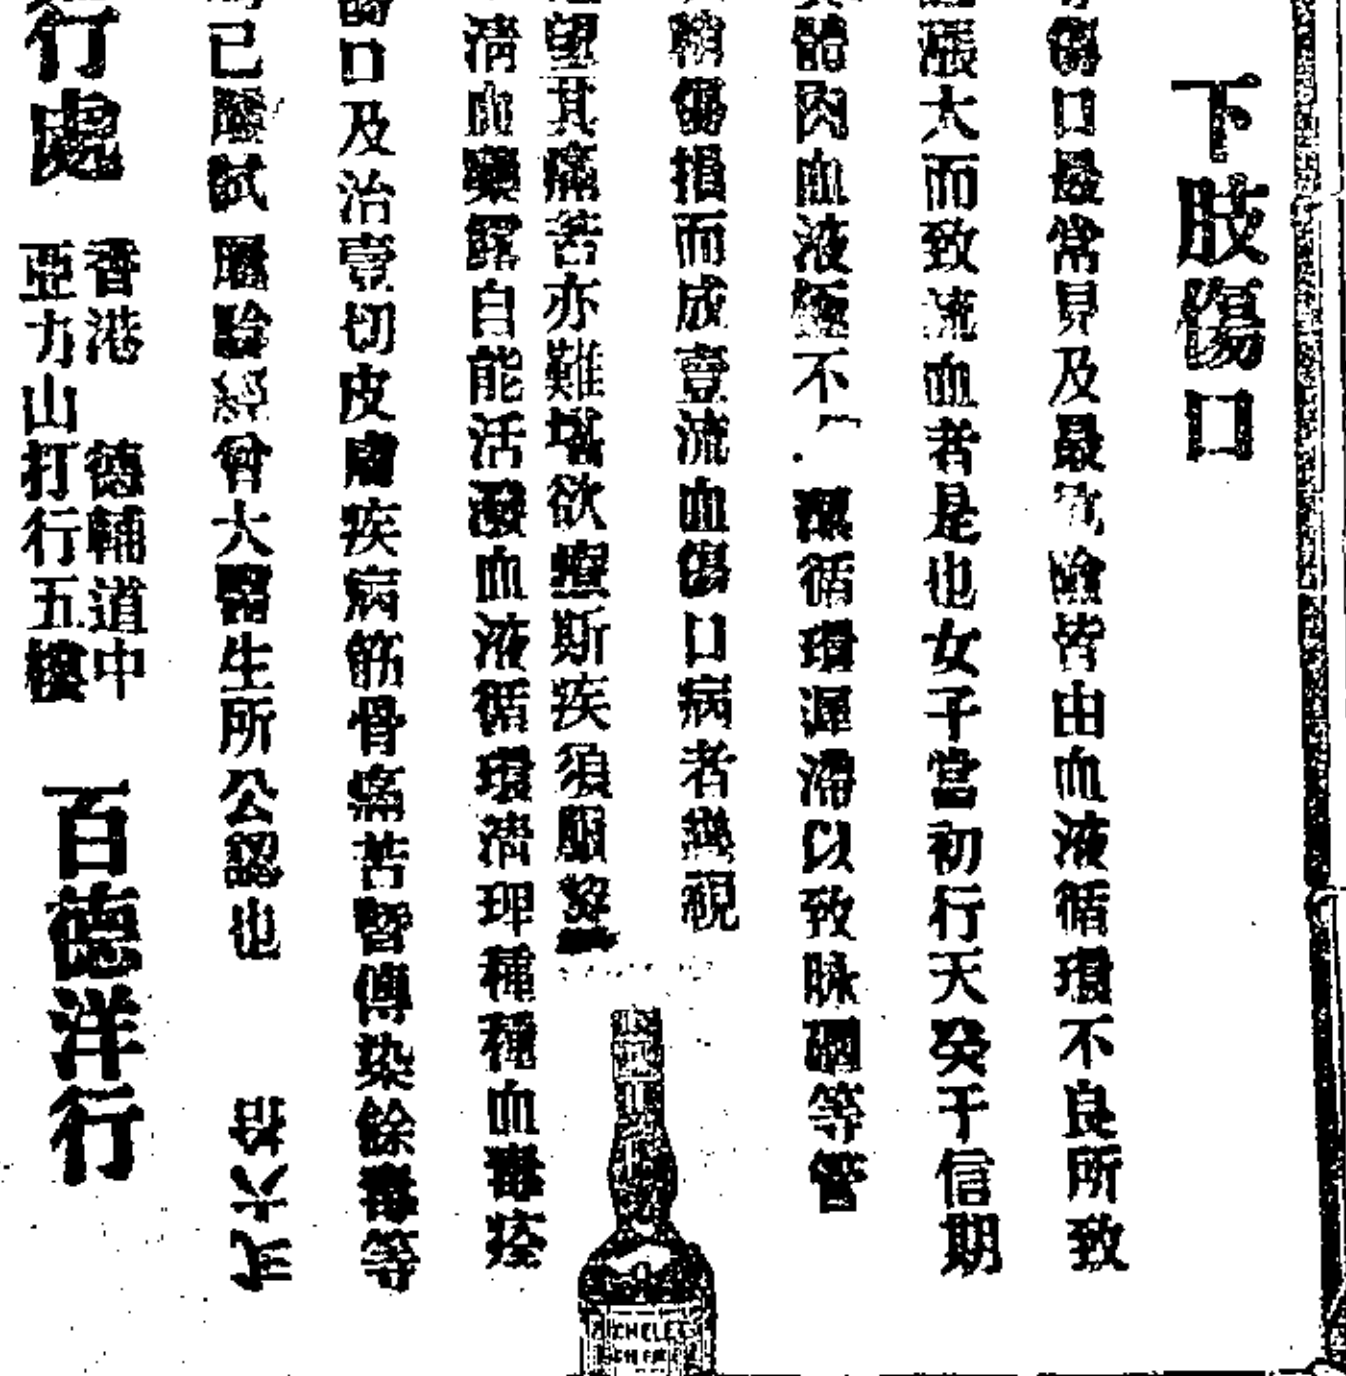 下肢傷口
傷口最常見及最危險皆由血液循環不良所致
漲大而致流血者是也女子當初行天癸于信期
體內血液極不 潔循環遲滯以致脉硒等管
稍傷損而成壹流血傷口病者蔑視
望其痛苦亦難堪欲療斯疾須服黎
清血藥露自能活潑血液循環清理種種血毒痊
口及治壹切皮膚疾病筋骨痛苦暨傳染餘毒等
已醫試騐經曾大醫生所公認也
行處
香港 德輔道中
亞力山打行五樓
百德洋行
CHELE